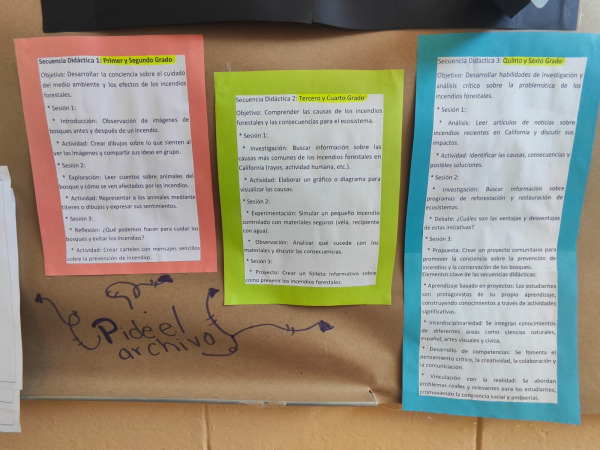 Secuencia Didáctica 1: Primer y Segundo Grado
Objetivo: Desarrollar la conciencia sobre el cuidado
del medio ambiente y los efectos de los incendios
forestales.
* Sesión 1:
* Introducción: Observación de imágenes de
bosques antes y después de un incendio.
* Actividad: Crear dibujos sobre lo que sienten al
ver las imágenes y compartir sus ideas en grupo.
* Sesión 2:
* Exploración: Leer cuentos sobre animales del
bosque y cómo se ven afectados por los incendios.
* Actividad: Representar a los animales mediante
títeres o dibujos y expresar sus sentimientos.
* Sesión 3:
* Reflexión: ¿Qué podemos hacer para cuidar los
bosques y evitar los incendios?
* Actividad: Crear carteles con mensajes sencillos
sobre la prevención de incendios.
Secuencia Didáctica 2: Tercero y Cuarto Grado
Objetivo: Comprender las causas de los incendios
forestales y las consecuencias para el ecosistema.
* Sesión 1:
* Investigación: Buscar información sobre las
causas más comunes de los incendios forestales en
California (rayos, actividad humana, etc.).
* Actividad: Elaborar un gráfico o diagrama para
visualizar las causas.
* Sesión 2:
* Experimentación: Simular un pequeño incendio
controlado con materiales seguros (vela, recipiente
con agua).
* Observación: Analizar qué sucede con los
materiales y discutir las consecuencias.
* Sesión 3:
* Proyecto: Crear un folleto informativo sobre
cómo prevenir los incendios forestales.
Secuencia Didáctica 3: Quinto y Sexto Grado
Objetivo: Desarrollar habilidades de investigación y
análisis crítico sobre la problemática de los
incendios forestales.
* Sesión 1:
* Análisis: Leer artículos de noticias sobre
incendios recientes en California y discutir sus
impactos.
* Actividad: Identificar las causas, consecuencias y
posibles soluciones.
* Sesión 2:
* Investigación: Buscar información sobre
programas de reforestación y restauración de
ecosistemas.
* Debate: ¿Cuáles son las ventajas y desventajas
de estas iniciativas?
* Sesión 3:
* Propuesta: Crear un proyecto comunitario para
promover la conciencia sobre la prevención de
incendios y la conservación de los bosques.
Elementos clave de las secuencias didácticas:
* Aprendizaje basado en proyectos: Los estudiantes
son protagonistas de su propio aprendizaje,
construyendo conocimientos a través de actividades
significativas.
* Interdisciplinariedad: Se integran conocimientos
de diferentes áreas como ciencias naturales,
español, artes visuales y cívica.
* Desarrollo de competencias: Se fomenta el
pensamiento crítico, la creatividad, la colaboración y
la comunicación.
* Vinculación con la realidad: Se abordan
problemas reales y relevantes para los estudiantes,
promoviendo la conciencia social y ambiental.
Pide el
archivo